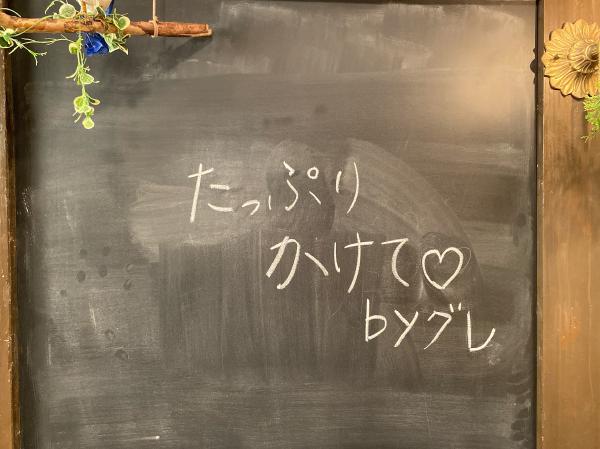 たっぷり
かけて♡
byグレ